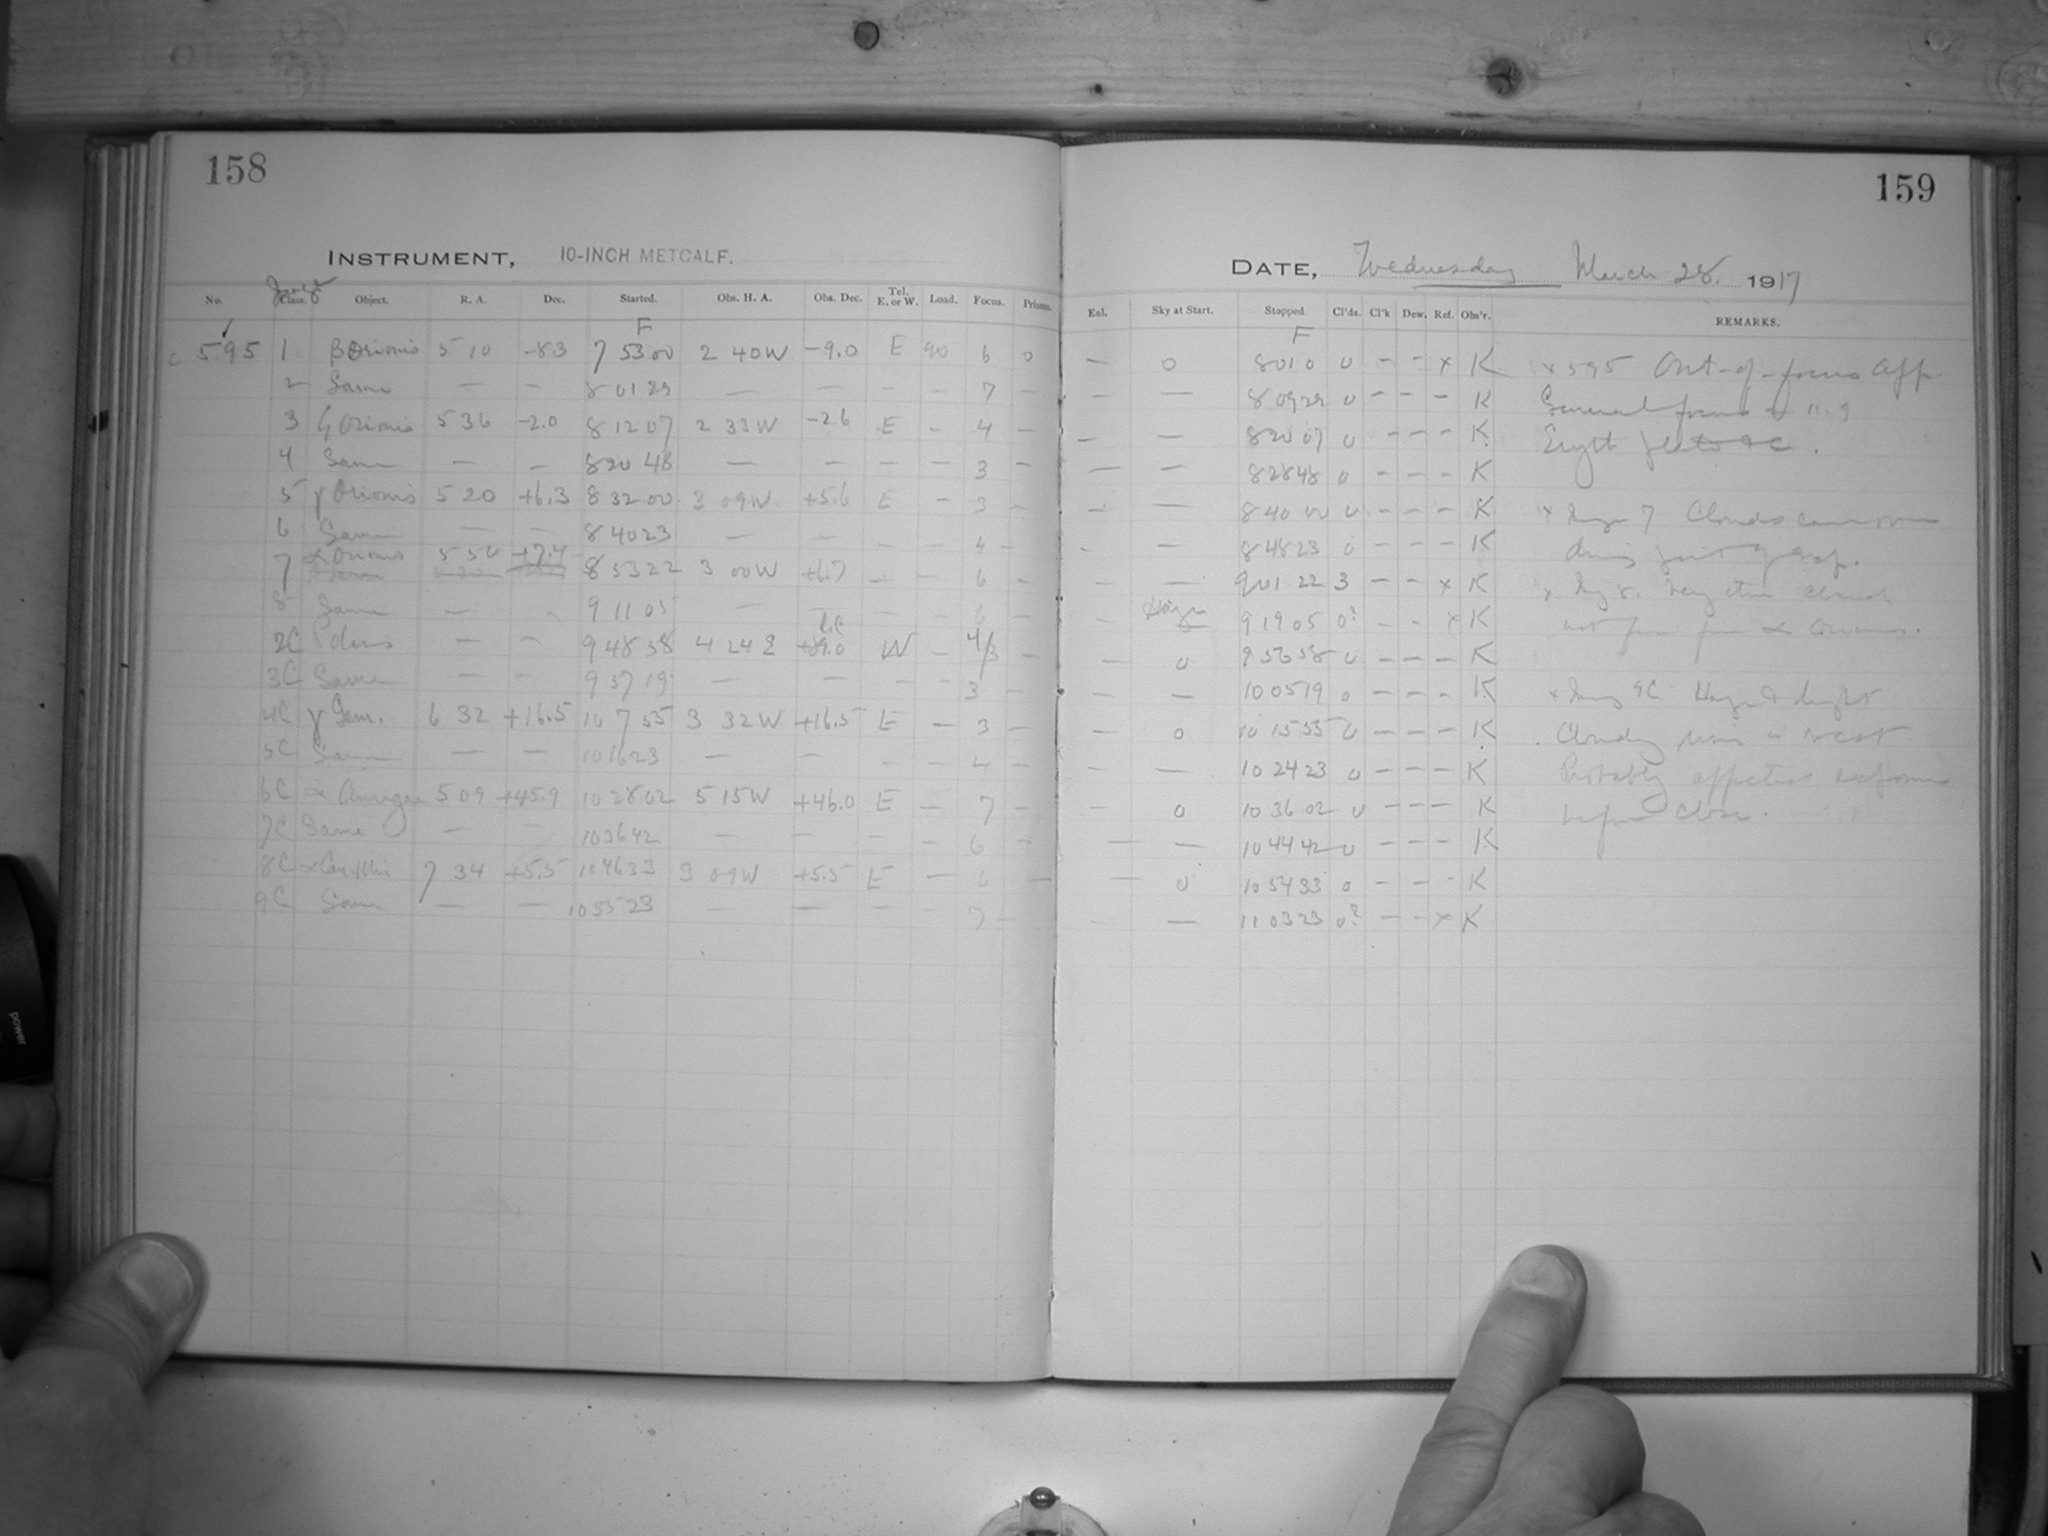 158
INSTRUMENT, 10-INCH METCALF.
No. Class. Object. R. A. Dec. Started. Obs. H. A. Obs. Dec. Tel. E. or W. Load. Focus. Prisms.
F
c 595 1 β Orionis 5 10 -8.3 7 53 00 2 40 W -9.0 E 90 6 0
2 Same — — 8 01 29 — — — — 7
3 ζ Orionis 5 36 -2.0 8 12 07 2 33 W -2.6 E - 4 -
4 Same — — 8 20 48 — — — — 3 -
5 γ Orionis 5 20 +6.3 8 32 00 3 09 W. +5.6 E - 3 -
6 Same — — 8 40 23 — — — - 4 -
7 α Orionis 5 50 +7.4 8 53 22 3 00 W +6.7 — - 6 -
8 Same — - 9 11 05 — — - 6 -
2C — - 9 48 58 4 24 E +89.0 W - 4/3 -
3C Same — - 9 57 19 — — - - 3 -
4C γ Gem. 6 32 +16.5 10 7 55 3 32 W +16.5 E — 3 -
5C Same — — 10 16 23 — — - - 4 -
6C α Aurigae 5 09 +45.9 10 28 02 5 15 W +46.0 E — 7 -
7C Same — — 10 36 42 — — — - 6 -
8C α Can. Min 7 34 +5.5 10 46 33 3 07 W +5.5 E — 6 —
9C Same — — 10 55 23 — — — - 7 -
159
DATE, Wednesday March 28. 1917
Eul. Sky at Start. Stopped. Cl'ds. Cl'k Dew. Ref. Obs'r. REMARKS.
F
— 0 8 01 0 0 - - x K x 595 Out-of-focus
— — 8 09 29 0 - - - K General focus 11.9
- — 8 20 07 0 - - - K.
— — 8 28 48 0 - - - K
- — 8 40 00 0 - - - K x 7 Clouds came over
- — 8 48 23 0 - - - K during
- — 9 01 22 3 - - x K x 8. Very thin cloud
- 9 19 05 0? - - x K not far from α Orionis.
— 0 9 56 58 0 - - - K
- — 10 05 19 0 - - - K x 9C Haze &
- 0 10 15 55 0 - - - K Cloudy in west
- — 10 24 23 0 - - - K Probably affected
- 0 10 36 02 0 - - - K before close.
— — 10 44 42 0 - - - K
— 0 10 54 33 0 - - - K
— 11 03 23 0? - - x K
power